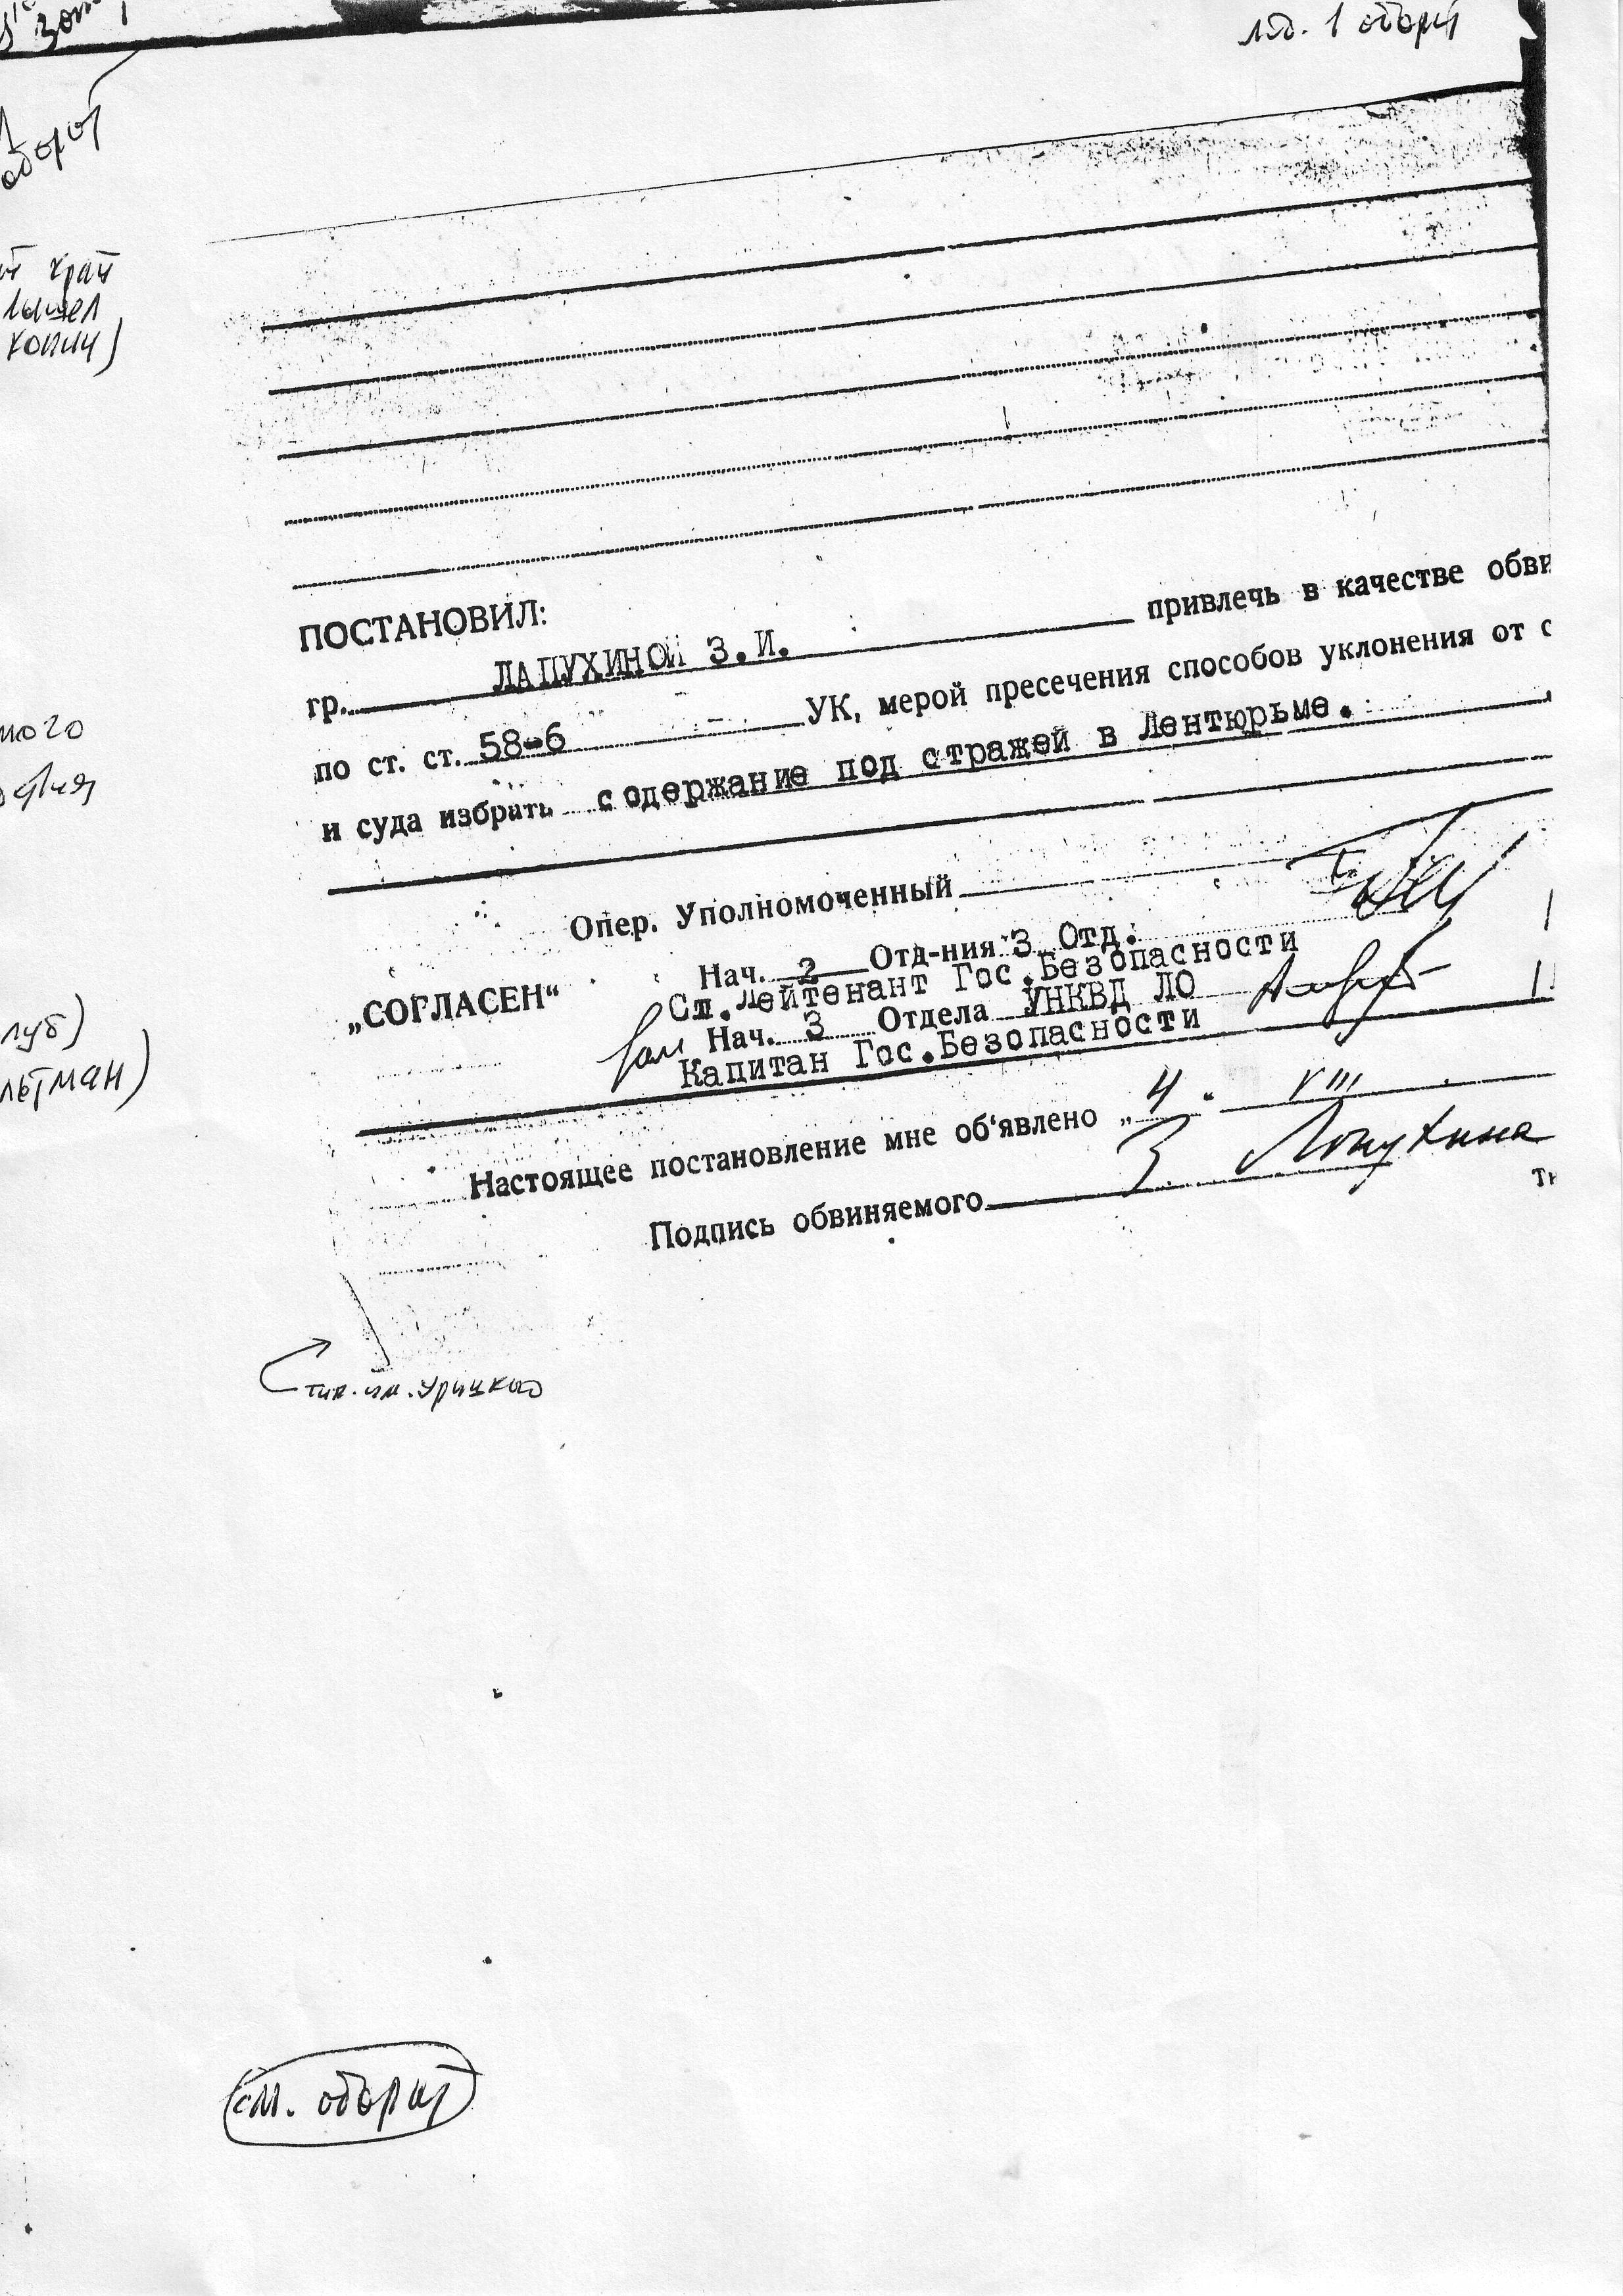 л.д. 1 оборот
оборот
край
копии)
ПОСТАНОВИЛ:
гр. ЛАПУХИНОЙ З.И. привлечь в качестве обви
по ст. ст. 58-6 УК, мерой пресечения способов уклонения от с
и суда избрать содержание под стражей в Лентюрьме.
Опер. Уполномоченный
„СОГЛАСЕН“
Нач. 2 Отд-ния 3 Отд.
Ст.лейтенант Гос.Безопасности
Зам Нач. 3 Отдела УНКВД ЛО
Капитан Гос.Безопасности
луб)
льтман)
Настоящее постановление мне об‘явлено „4“ VIII
Подпись обвиняемого З. Лопухина
тип. им. Урицкого
см. оборот